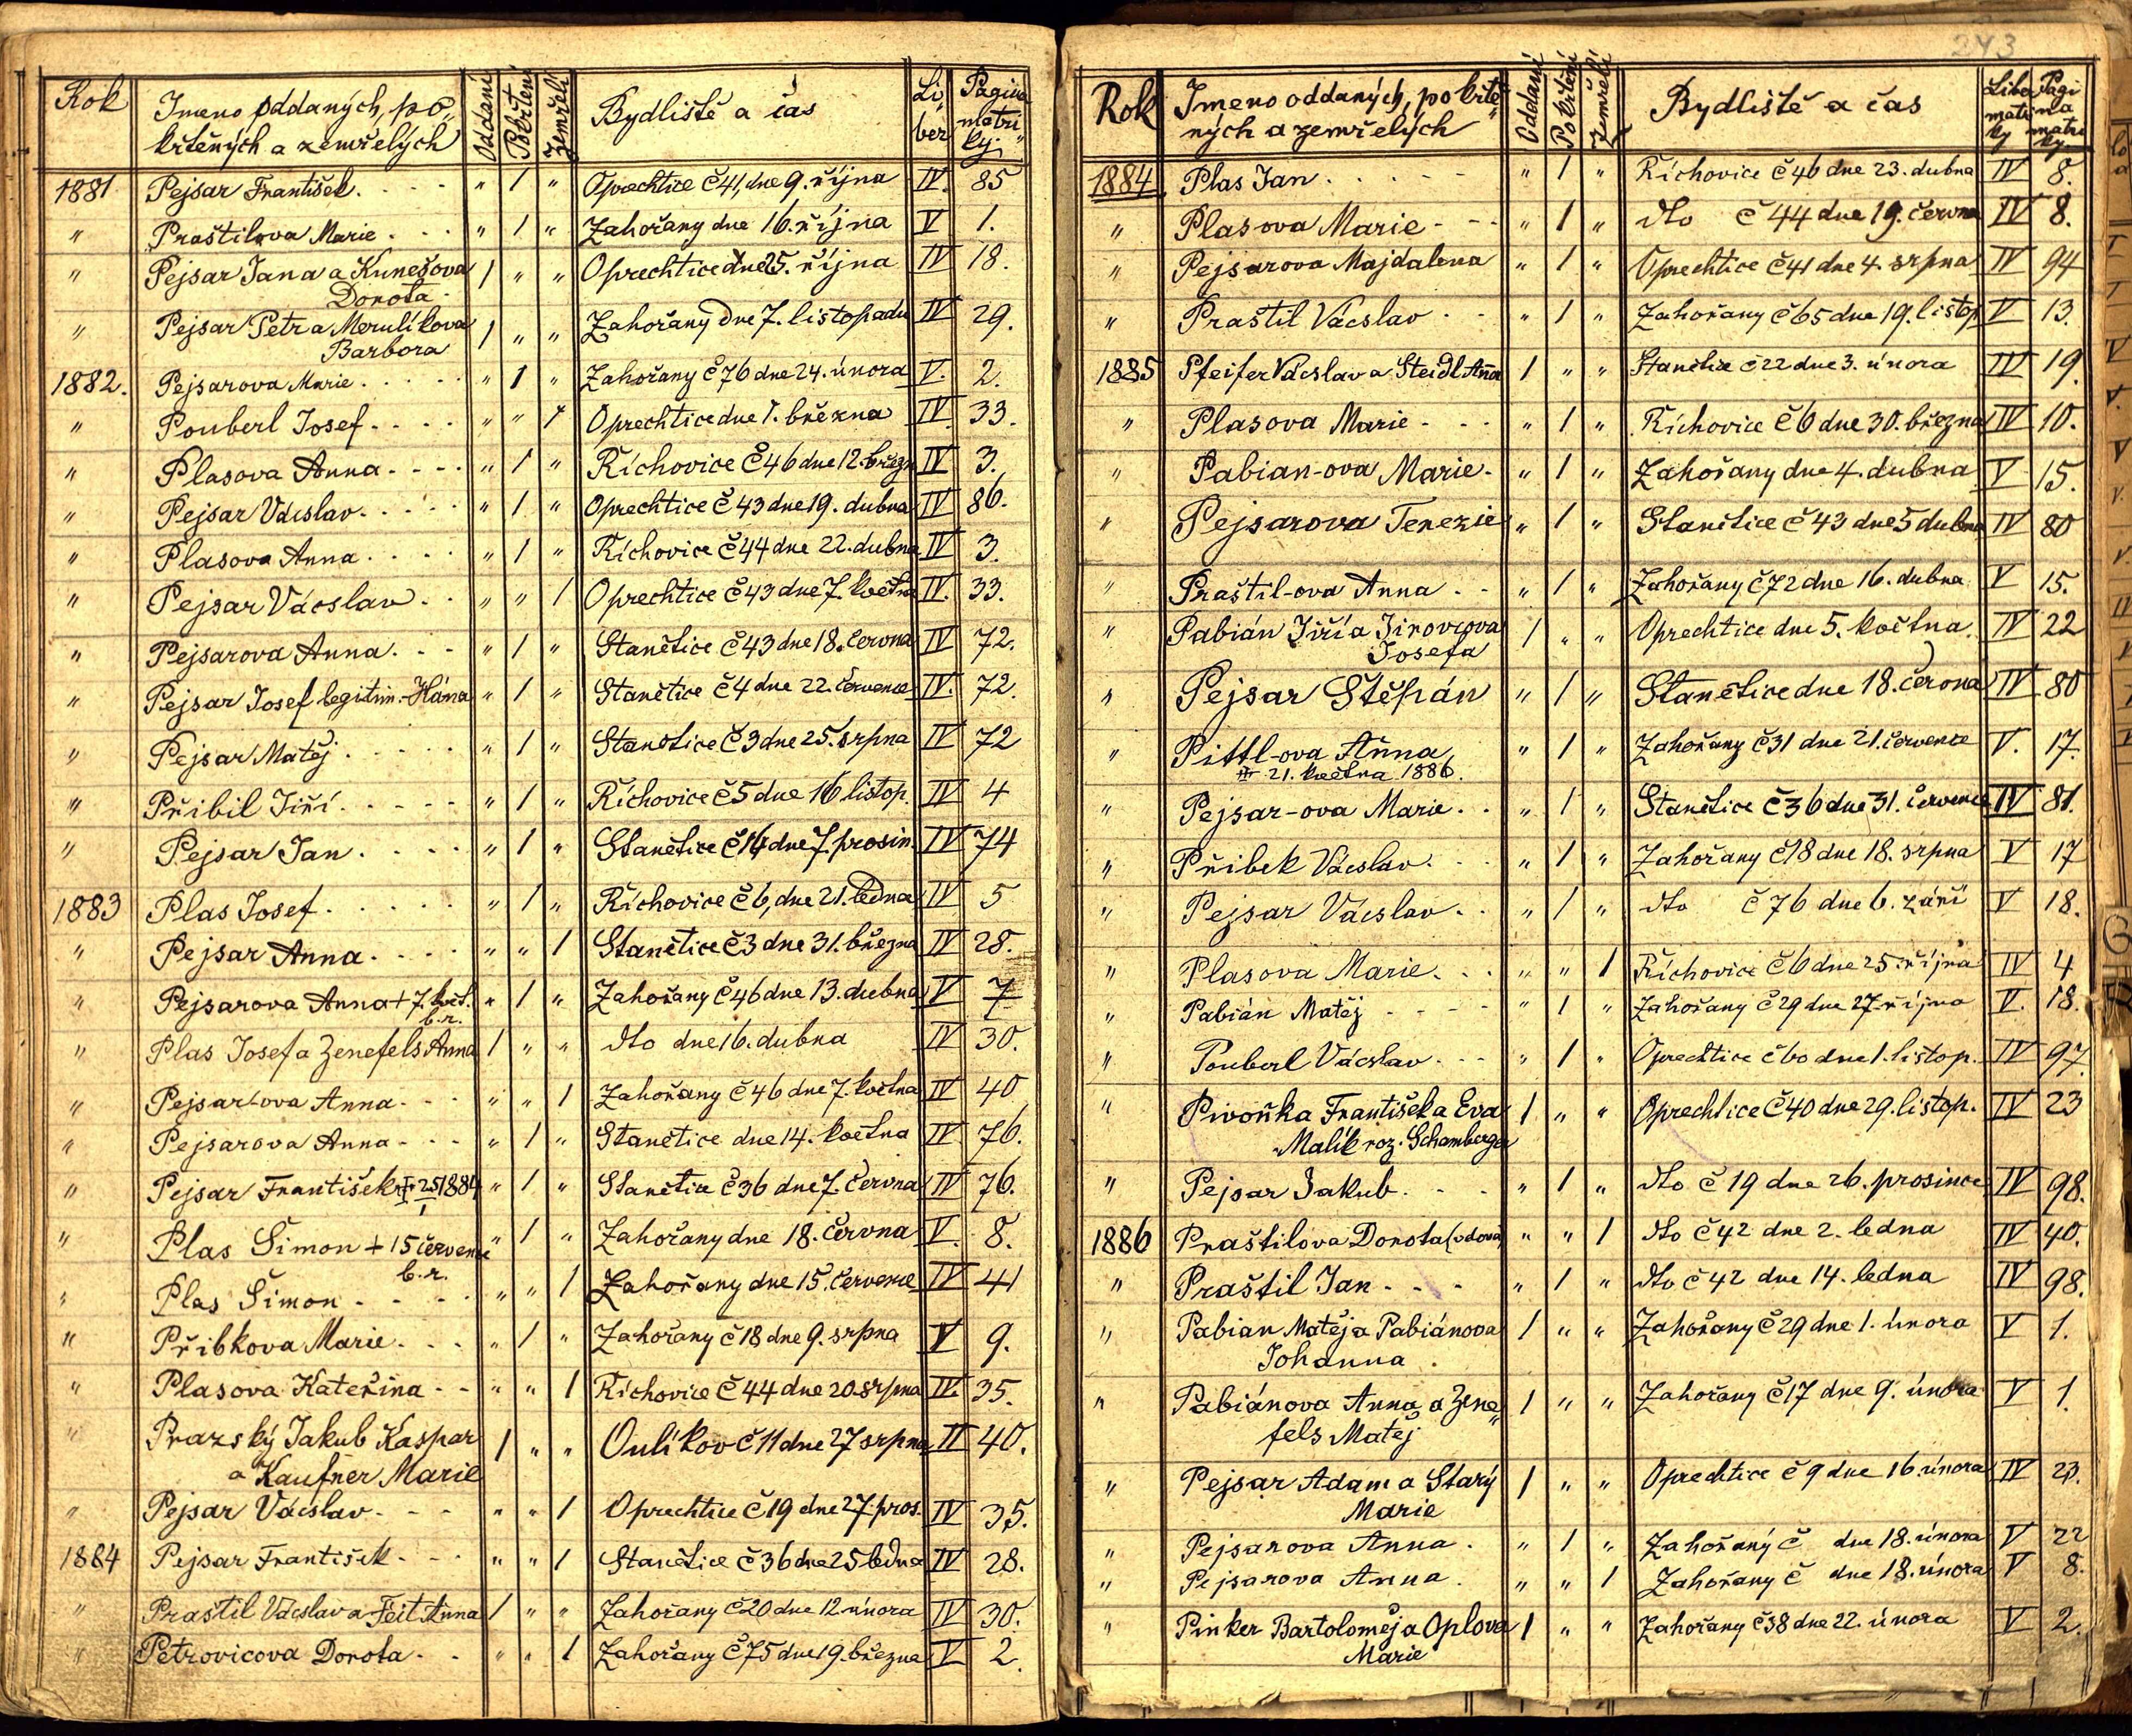 Rok Jmeno oddaných, po„ křtěných a zemřelých Oddaní Pokřtení Zemřelí Bydliště a čas Li„ber Pagina matri„ky
1881 Pejsar František. . . . „ 1 „ Oprechtice č 41, dne 9. října IV. 85
„ Praštilova Marie . . . „ 1 „ Zahořany dne 16. října V 1.
„ Pejsar Jana a Kunešova 1 „ „ Oprechtice dne 25. října IV 18.
Dorota
„ Pejsar Petr a Merulíkova 1 „ „ Zahořany dne 7. listopadu IV 29.
Barbora
1882. Pejsarova Marie . . . . . „ 1 „ Zahořany č 76 dne 24. února V. 2.
„ Pouberl Josef . . . . „ „ 1 Oprechtice dne 1. března IV. 33.
„ Plasova Anna . . . . „ 1 „ Říchovice č 46 dne 12. březn IV 3.
„ Pejsar Václav . . . . . „ 1 „ Oprechtice č 43 dne 19. dubna IV 86.
„ Plasova Anna . . . . „ 1 „ Říchovice č 44 dne 22. dubna IV 3.
„ Pejsar Vácslav . . „ „ 1 Oprechtice č 43 dne 7. května IV. 33.
„ Pejsarova Anna . . - „ 1 „ Stanětice č 43 dne 18. června IV 72.
„ Pejsar Josef legitim. - Hána „ 1 „ Stanětice č 4 dne 22. července IV. 72.
„ Pejsar Matěj . . . . . „ 1 „ Stanětice č 3 dne 25. srpna IV 72
„ Přibil Jiří . . . . . „ 1 „ Říchovice č 5 dne 16 listop. IV 4
„ Pejsar Jan . . . . „ 1 „ Stanětice č 14 dne 7. prosin. IV 74
1883 Plas Josef . . . . . „ 1 „ Říchovice č 6, dne 21. ledna IV 5
„ Pejsar Anna . . . . „ „ 1 Stanětice č 3 dne 31. března IV 28.
„ Pejsarova Anna + 7. květ. „ 1 „ Zahořany č 46 dne 13. dubna V 7
b.r.
„ Plas Josef a Zenefels Anna 1 „ „ dto dne 16. dubna IV 30.
„ Pejsar-ova Anna . . . „ „ 1 Zahořany č 46 dne 7. května IV 40
„ Pejsarova Anna . . . „ 1 „ Stanětice dne 14. května IV 76.
„ Pejsar František 25/I 1884 „ 1 „ Stanětice č 36 dne 7. června IV 76.
„ Plas Šimon + 15 července „ 1 „ Zahořany dne 18. června V. 8.
b.r.
„ Plas Šimon . . . . „ „ 1 Zahořany dne 15. července IV 41
„ Přibkova Marie . . . „ 1 „ Zahořany č 18 dne 9. srpna V 9.
„ Plasova Kateřina . . „ „ 1 Říchovice č 44 dne 20. srpna IV. 35.
„ Prazský Jakub Kaspar 1 „ „ Oulíkov č 11 dne 27 srpna II 40.
a Kaufner Marie
„ Pejsar Václav . . . „ „ 1 Oprechtice č 19 dne 27. pros. IV 35.
1884 Pejsar František . . . „ „ 1 Stanětice č 36 dne 25 ledna IV 28.
„ Praštil Václav a Feit Anna 1 „ „ Zahořany č 20 dne 12. února IV 30.
„ Petrovicova Dorota . . „ „ 1 Zahořany č 75 dne 19. března V 2.
243
Rok Jmeno oddaných, po křtě„ných a zemřelých Oddaní Pokřtění Zemřelí Bydliště a čas Liber matri ky Pagina matri ky
1884 Plas Jan . . . . . „ 1 „ Říchovice č 46 dne 23. dubna IV 8.
„ Plasova Marie . . . „ 1 „ dto č 44 dne 19. června IV 8.
„ Pejsarova Majdalena „ 1 „ Oprechtice č 41 dne 4. srpna IV 94
„ Praštil Vácslav . . „ 1 „ Zahořany č 65 dne 19. listop V 13.
1885 Pfeifer Vácslav a Steidl Anna 1 „ „ Stanětice č 22 dne 3. února IV 19.
„ Plasova Marie . . . „ 1 „ Říchovice č 6 dne 30. března IV 10.
„ Pabian-ova Marie . „ 1 „ Zahořany dne 4. dubna V 15.
„ Pejsarova Terezie „ 1 „ Stanětice č 43 dne 5 dubna IV 80
„ Praštil-ova Anna . . „ 1 „ Zahořany č 72 dne 16. dubna V 15.
„ Pabián Jiří a Jirovcova 1 „ „ Oprechtice dne 5. května. IV 22
Josefa
„ Pejsar Štěpán „ 1 „ Stanětice dne 18. června IV 80
„ Pittl-ova Anna „ 1 „ Zahořany č 31 dne 21. července V. 17.
21. května 1886.
„ Pejsar-ova Marie . . „ 1 „ Stanětice č 36 dne 31. července IV 81.
„ Přibek Vácslav . . . „ 1 „ Zahořany č 18 dne 18. srpna V 17
„ Pejsar Vácslav . . „ 1 „ dto č 76 dne 6. září V 18.
„ Plasova Marie . . . „ „ 1 Říchovice č 6 dne 25. října IV 4
„ Pabián Matěj . . . . „ 1 „ Zahořany č 29 dne 27. října V. 18.
„ Pouberl Vácslav . . . „ 1 „ Oprechtice č 60 dne 1. listop. IV 97.
„ Pivoňka František a Eva 1 „ „ Oprechtice č 40 dne 29. listop. IV 23
Malík roz. Schamberger
„ Pejsar Jakub . . . „ 1 „ dto č 19 dne 26. prosince IV 98.
1886 Praštilova Dorota (vdova) „ „ 1 dto č 42 dne 2. ledna IV 40.
„ Praštil Jan . . . „ 1 „ dto č 42 dne 14. ledna IV 98.
„ Pabian Matěj a Pabiánova 1 „ „ Zahořany č 29 dne 1. února V 1.
Johanna
„ Pabiánova Anna a Zene„ 1 „ „ Zahořany č 17 dne 9. února V 1.
fels Matěj
„ Pejsar Adam a Starý 1 „ „ Oprechtice č 9 dne 16. února IV 23.
Marie
„ Pejsarova Anna . „ 1 „ Zahořaný č dne 18. února V 22
„ Pejsarova Anna . „ „ 1 Zahořany č dne 18. února V 8.
„ Pinker Bartoloměj a Oplova 1 „ „ Zahořany č 38 dne 22. února V 2.
Marie